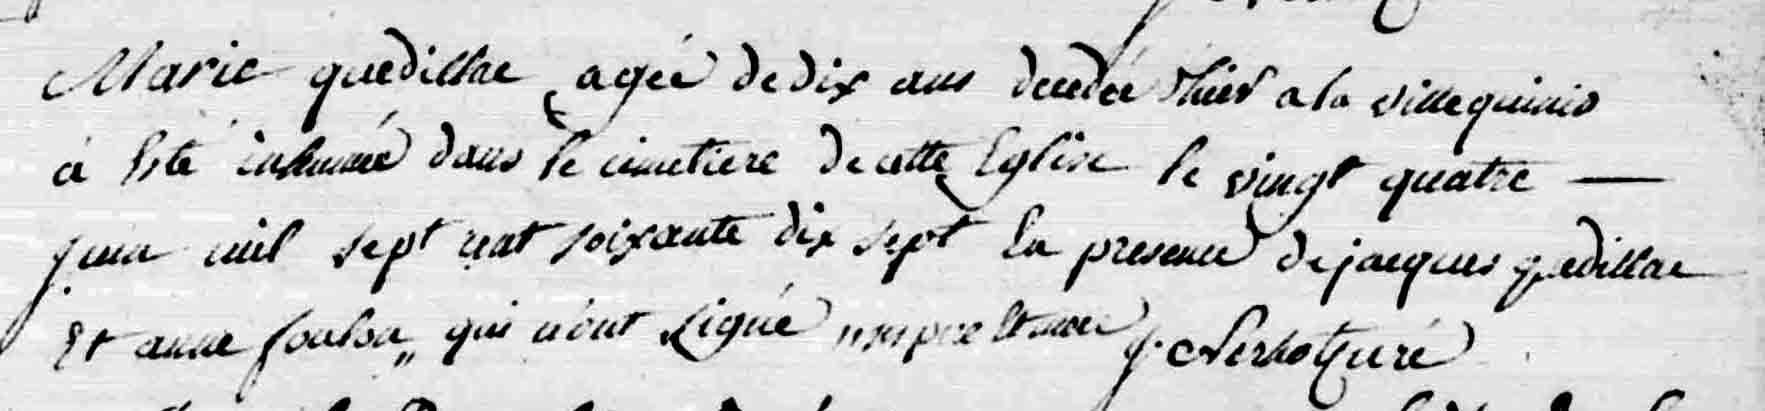 Marie quedillac agée de dix ans decedée d'hier a la ville quinio
a Esté inhumée dans le cimetiere de cette Eglise le vingt quatre —
juin mil sept cent soixante dix sept En presence de jacques quedillac
Et anne foulon qui n'ont signé J. curé